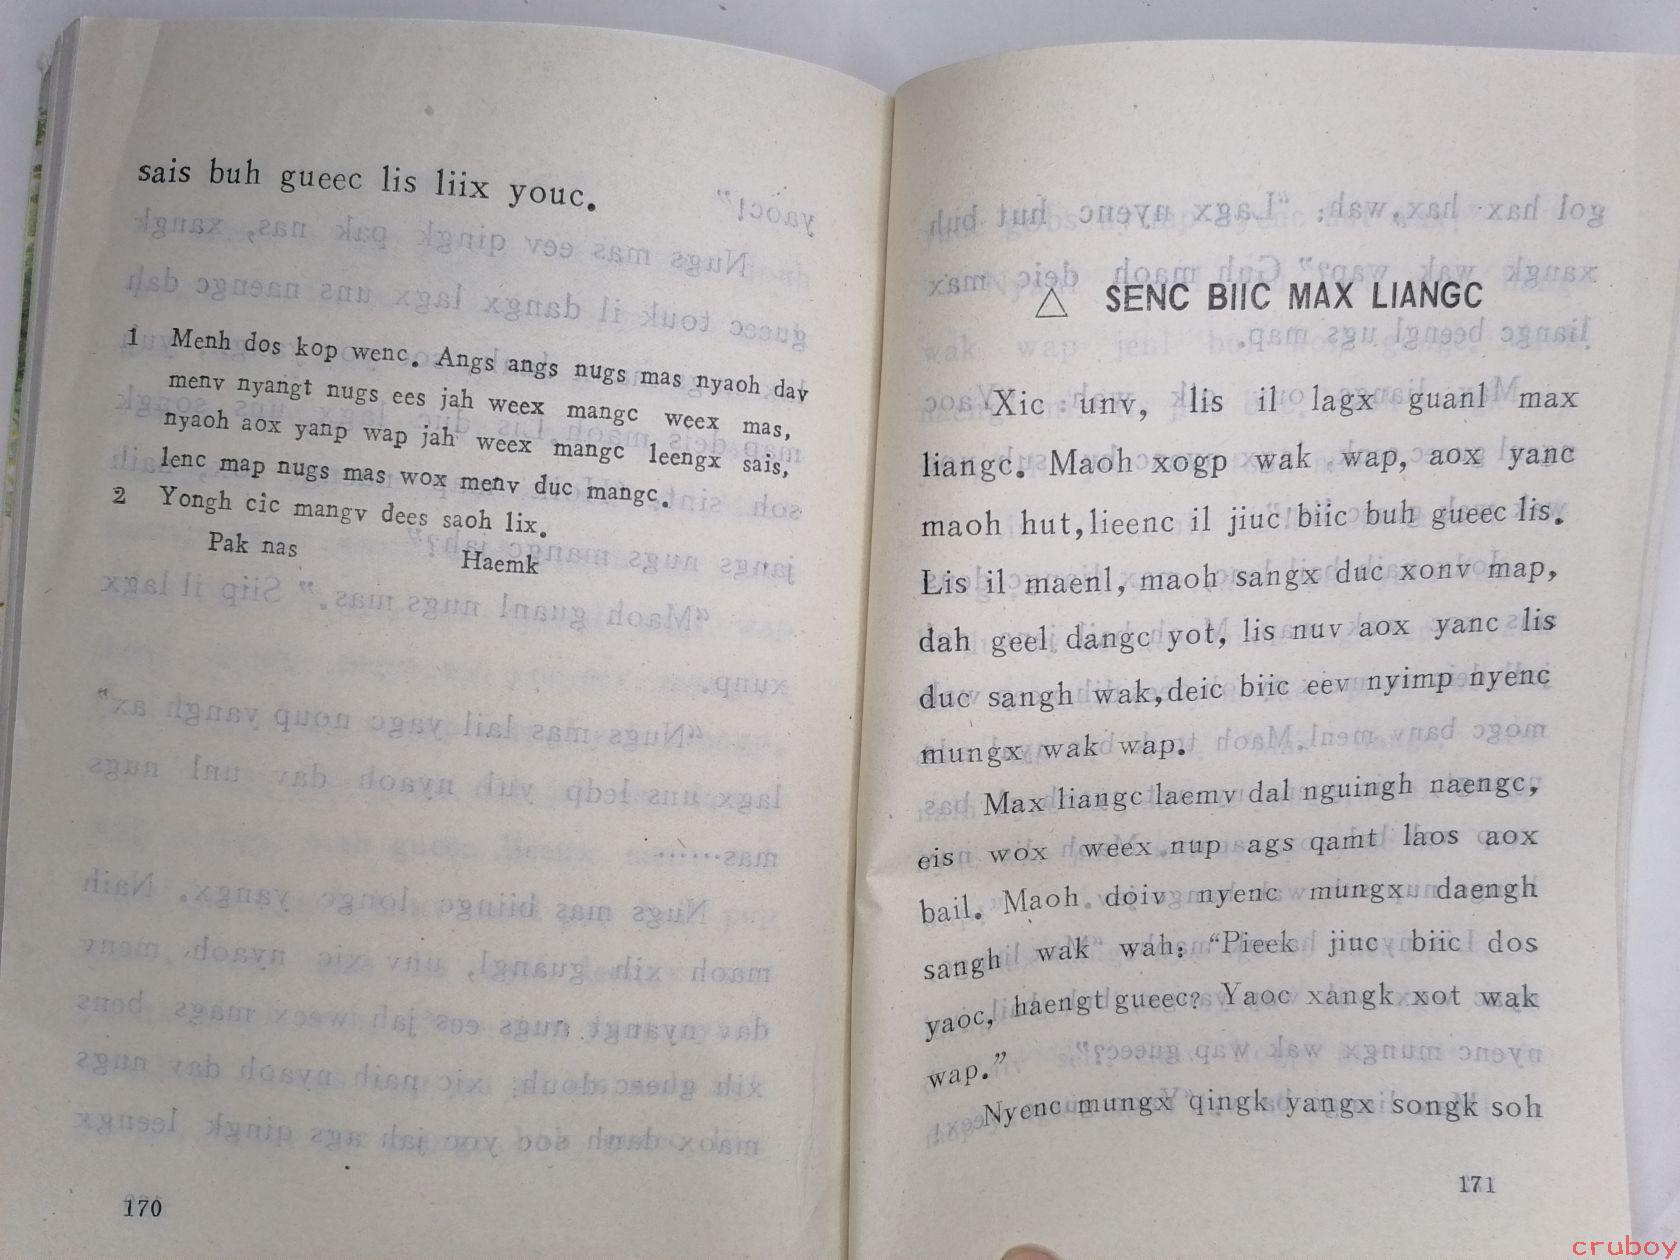 sais buh gueec lis liix youc.
1 Menh dos kop wenc. Angs angs nugs mas nyaoh dav
menv nyangt nugs ees jah weex mangc weex mas,
nyaoh aox yanp wap jah weex mangc leengx sais,
lenc map nugs mas wox menv duc mangc.
2 Yongh cic mangv dees saoh lix.
Pak nas Haemk
170
△ SENC BIIC MAX LIANGC
Xic unv, lis il lagx guanl max
liangc. Maoh xogp wak wap, aox yanc
maoh hut, lieenc il jiuc biic buh gueec lis.
Lis il maenl, maoh sangx duc xonv map,
dah geel dangc yot, lis nuv aox yanc lis
duc sangh wak, deic biic eev nyimp nyenc
mungx wak wap.
Max liangc laemv dal nguingh naengc,
eis wox weex nup ags qamt laos aox
bail. Maoh doiv nyenc mungx daengh
sangh wak wah: “Pieek jiuc biic dos
yaoc, haengt gueec? Yaoc xangk xot wak
wap.”
Nyenc mungx qingk yangx songk soh
171
cruboy